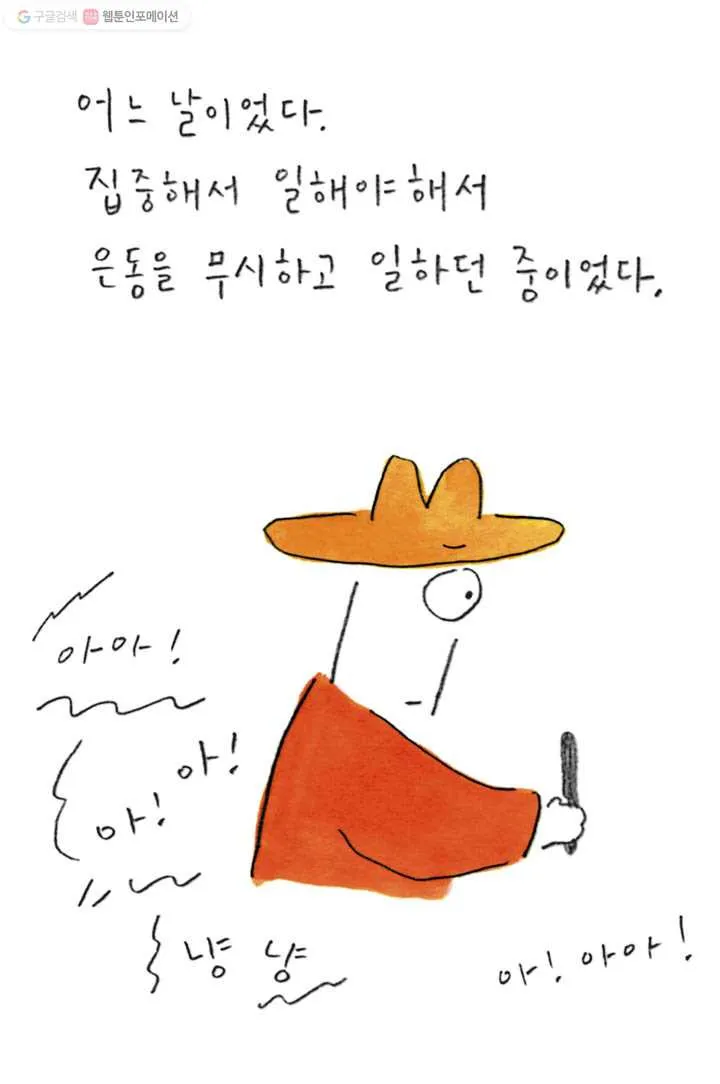 구글검색 웹툰인포메이션
어느 날이었다.
집중해서 일해야해서
운동을 무시하고 일하던 중이었다.
아아!
아!
아!
냥 냥
아! 아아!